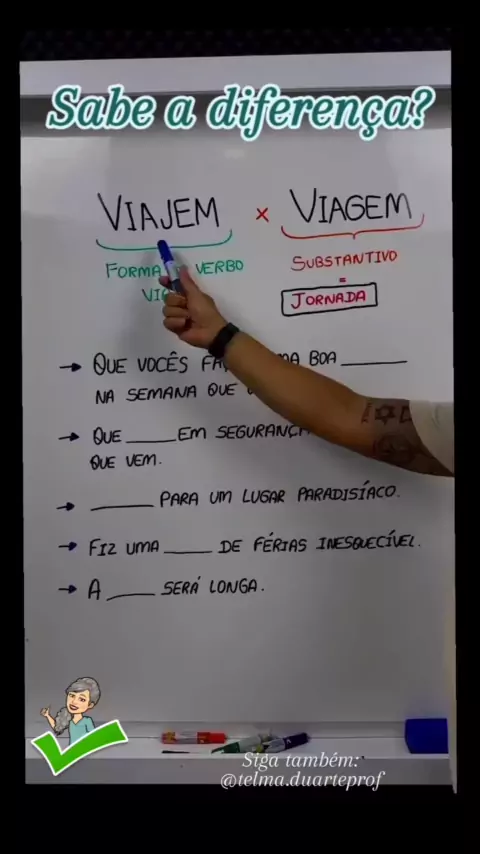 Sabe a diferença?
VIAJEM x VIAGEM
FORMA VERBO
SUBSTANTIVO
=
JORNADA
→ QUE VOCÊS BOA ______
NA SEMANA QUE
→ QUE _____ EM SEGURANÇA
QUE VEM.
→ ______ PARA UM LUGAR PARADISÍACO.
→ FIZ UMA _____ DE FÉRIAS INESQUECÍVEL.
→ A _____ SERÁ LONGA.
Siga também:
@telma.duarteprof